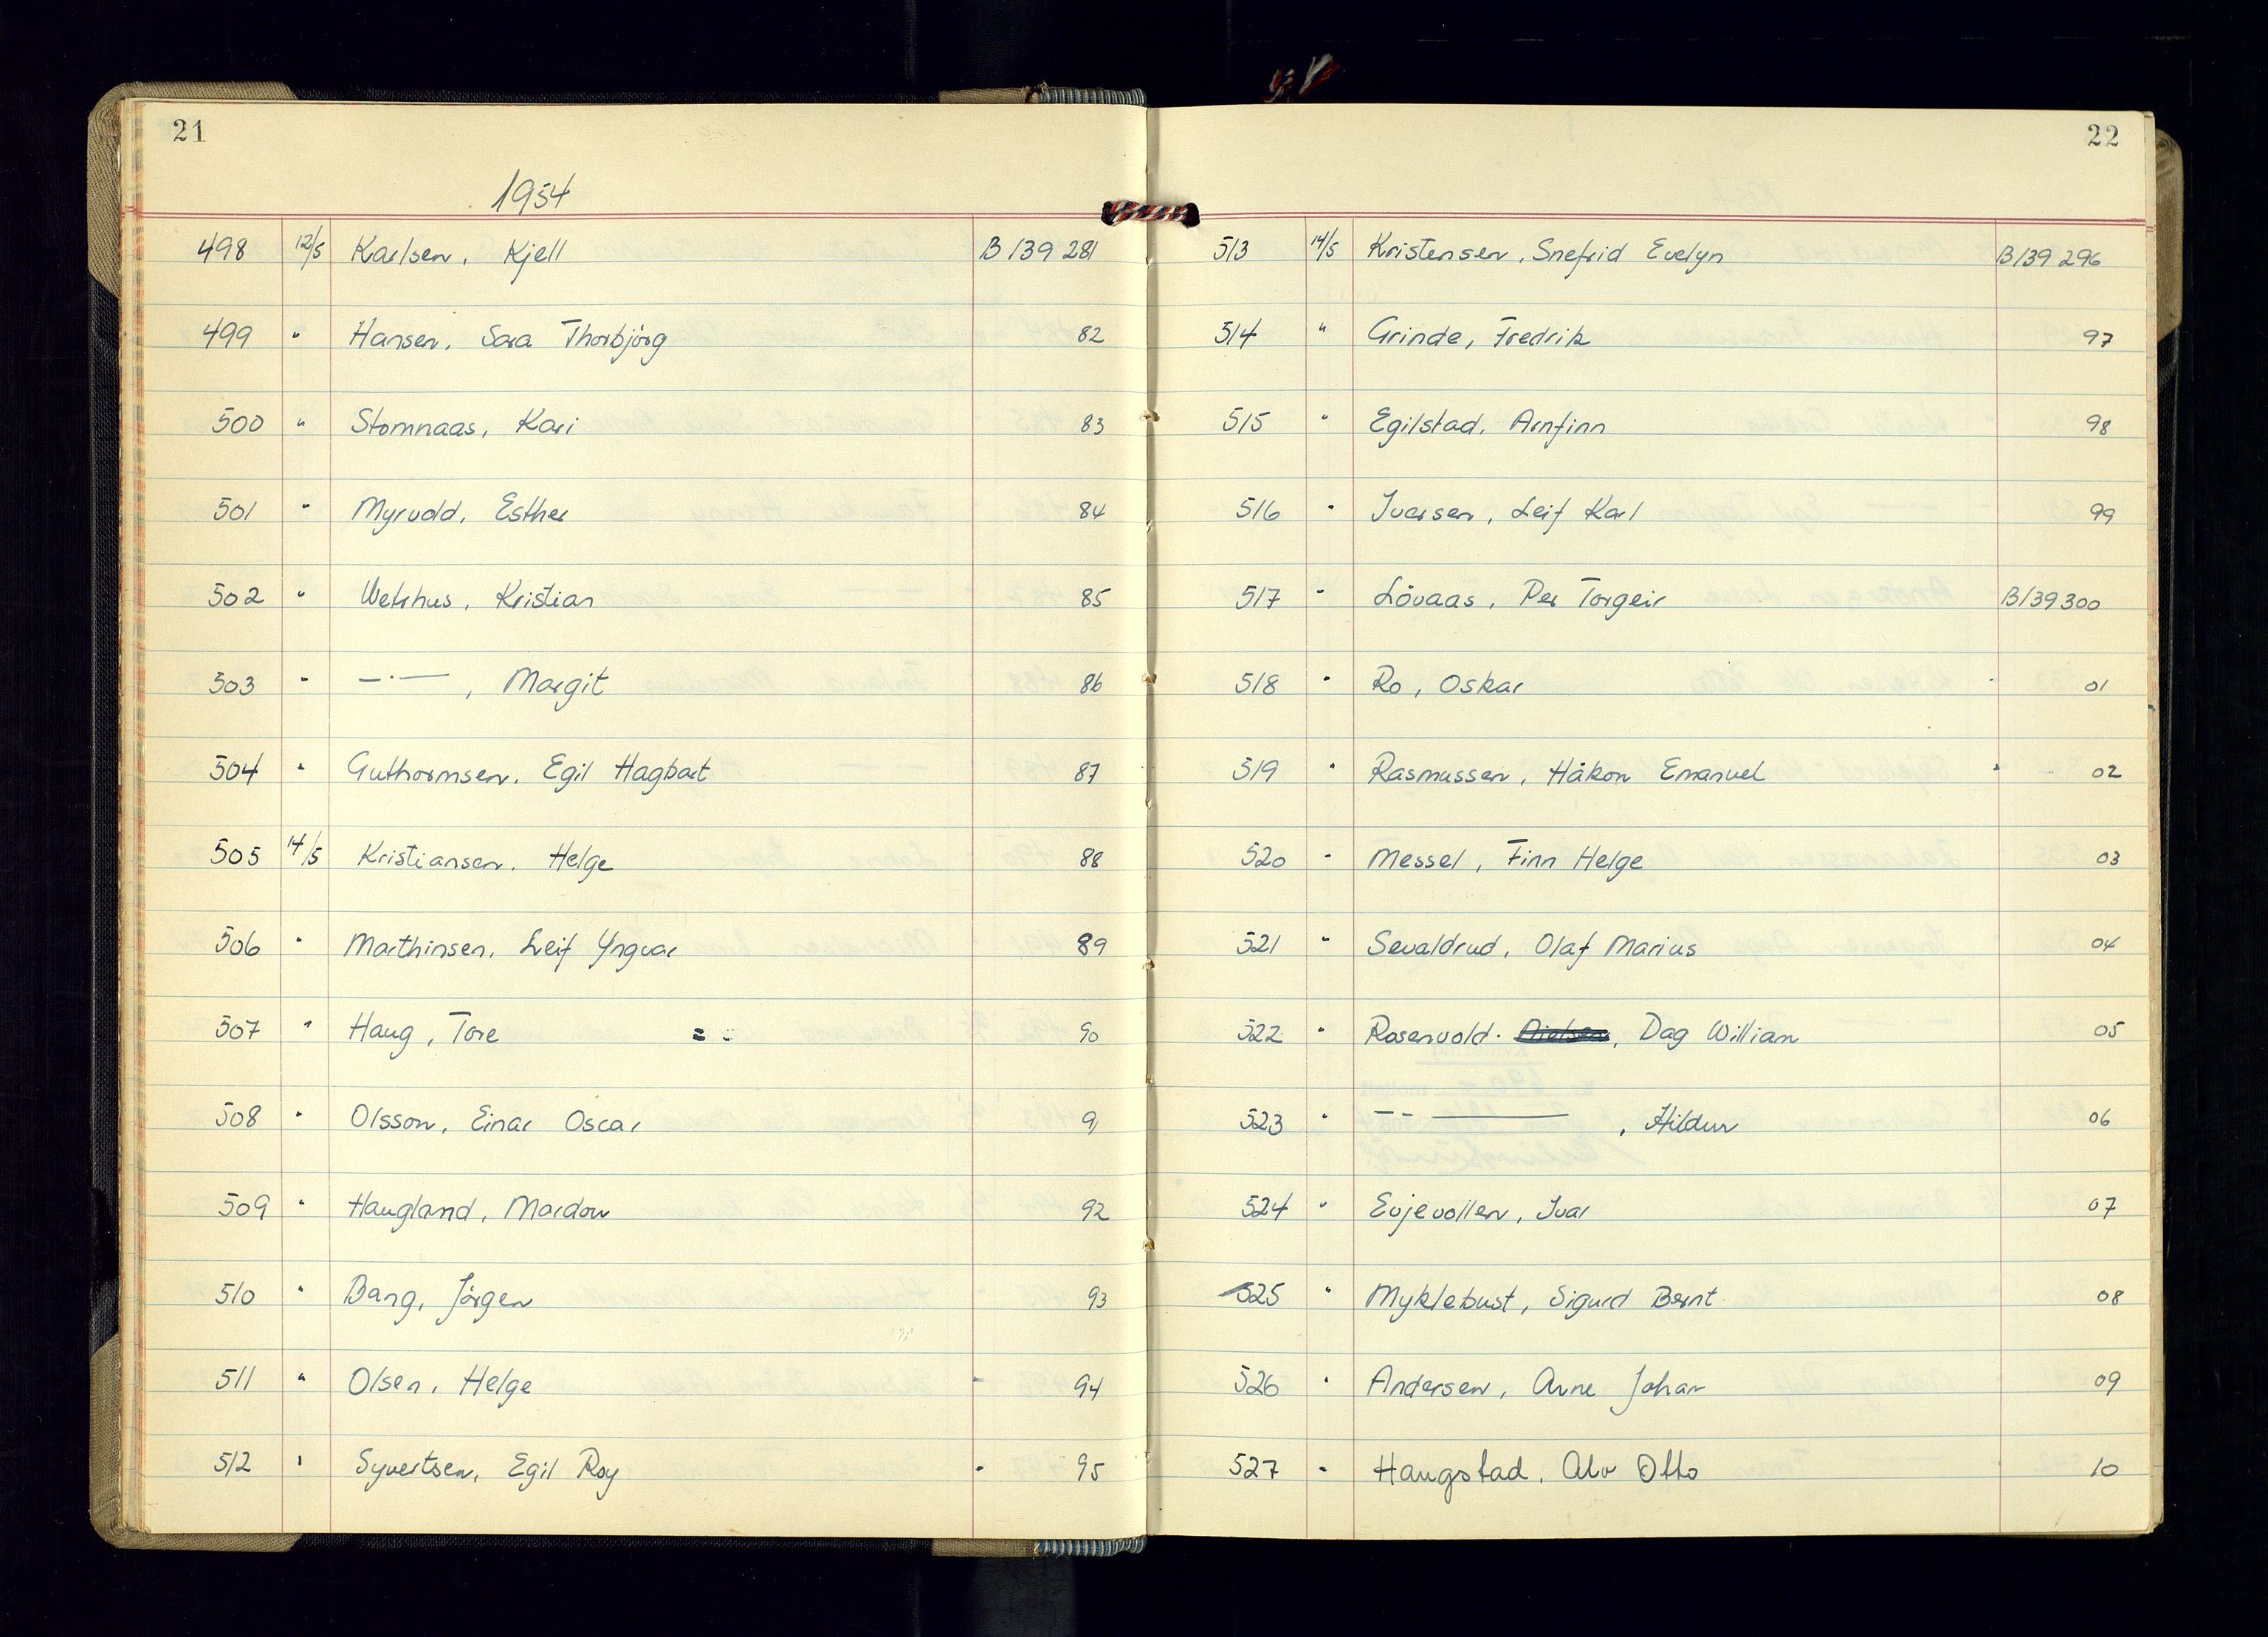 21
1954
498 12/5 Karlsen, Kjell B 139 281
499 " Hansen, Sara Thorbjörg 82
500 " Stomnaas, Kari 83
501 " Myrvold, Esther 84
502 " Wetrhus, Kristian 85
503 " —·—, Margit 86
504 " Guthormsen, Egil Hagbart 87
505 14/5 Kristiansen, Helge 88
506 " Marthinsen, Leif Yngvar 89
507 " Haug, Tore 90
508 " Olsson, Einar Oscar 91
509 " Haugland, Mardon 92
510 " Bang, Jörgen 93
511 " Olsen, Helge 94
512 " Syvertsen, Egil Roy 95
22
513 14/5 Kristensen, Snefrid Evelyn B 139 296
514 " Grinde, Fredrik 97
515 " Egilstad, Arnfinn 98
516 " Iversen, Leif Karl 99
517 " Lövaas, Per Torgeir B 139 300
518 " Ro, Oskar 01
519 " Rasmussen, Håkon Emanuel 02
520 " Messel, Finn Helge 03
521 " Sevaldrud, Olaf Marius 04
522 " Rosenvold - Nielsen, Dag William 05
523 " —"—, Hildur 06
524 " Evjevollen, Ivar 07
525 " Myklebust, Sigurd Bernt 08
526 " Andersen, Arne Johan 09
527 " Haugstad, Alv Otto 10